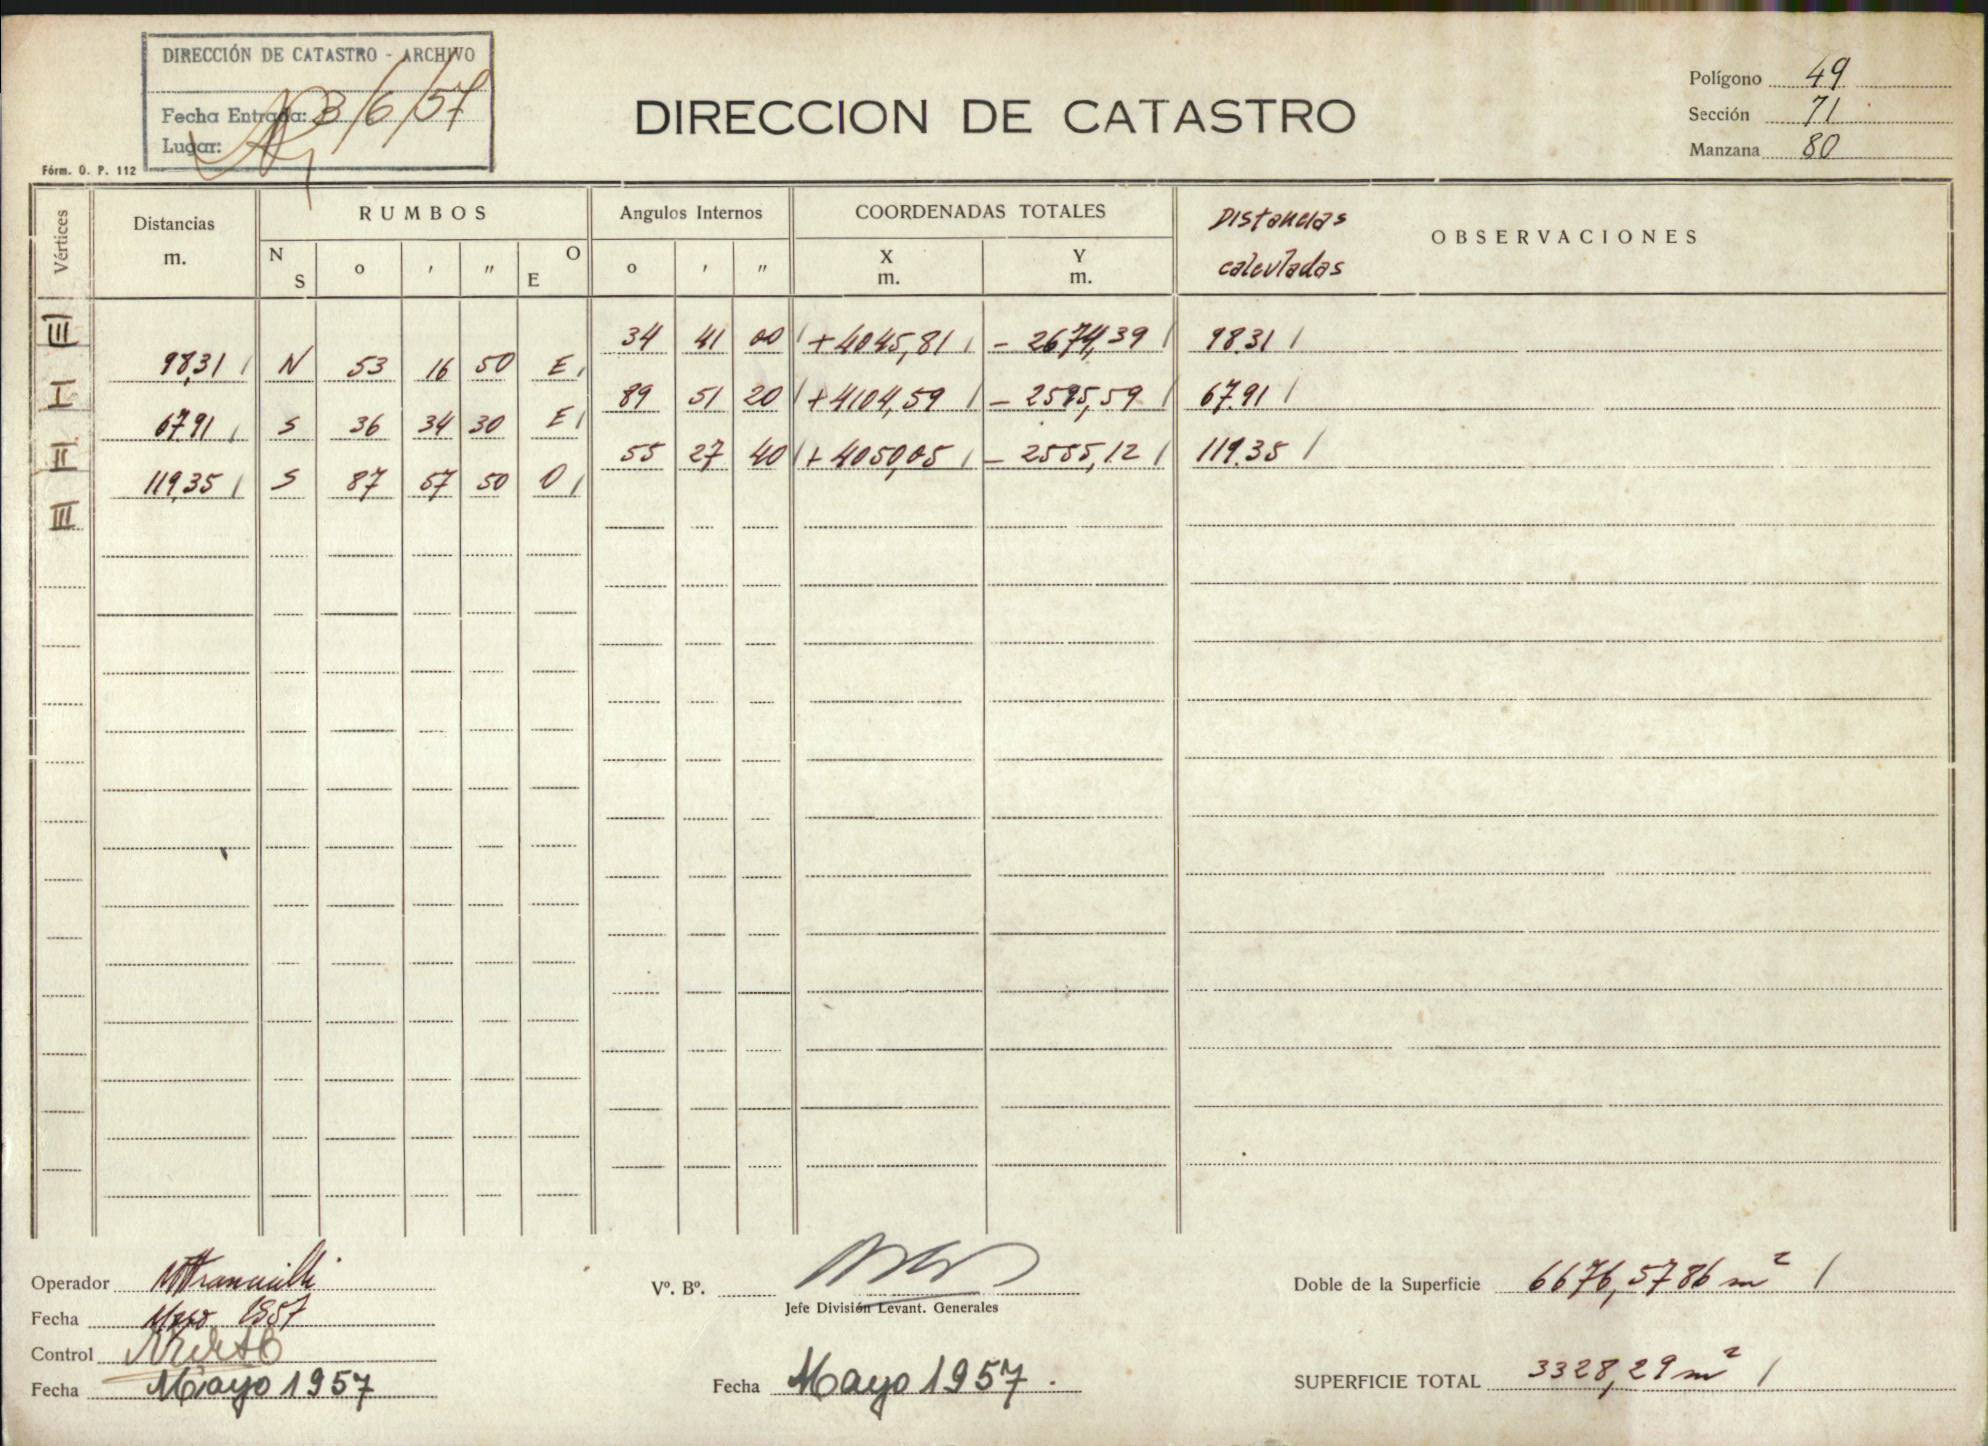 DIRECCIÓN DE CATASTRO - ARCHIVO
Fecha Entrada: 3/6/57
Lugar:
Fórm. O. P. 112
DIRECCION DE CATASTRO
Polígono 49
Sección 71
Manzana 80
Vértices
Distancias
m.
RUMBOS
N S ° ′ ″ O E
Angulos Internos
° ′ ″
COORDENADAS TOTALES
X
m.
Y
m.
Distancias
calculadas
OBSERVACIONES
III
34 41 00 +4045,81 - 2674,39 98.31
98,31 N 53 16 50 E
I
89 51 20 +4104,59 - 2595,59 67.91
67,91 S 36 34 30 E
II
55 27 40 +4050,05 - 2555,12 119.35
119,35 S 87 57 50 O
III
Operador
Fecha Mayo 1957
Control
Fecha Mayo 1957
Vº. Bº.
Jefe División Levant. Generales
Fecha Mayo 1957.
Doble de la Superficie 6676,5786 m²
SUPERFICIE TOTAL 3328,29 m²